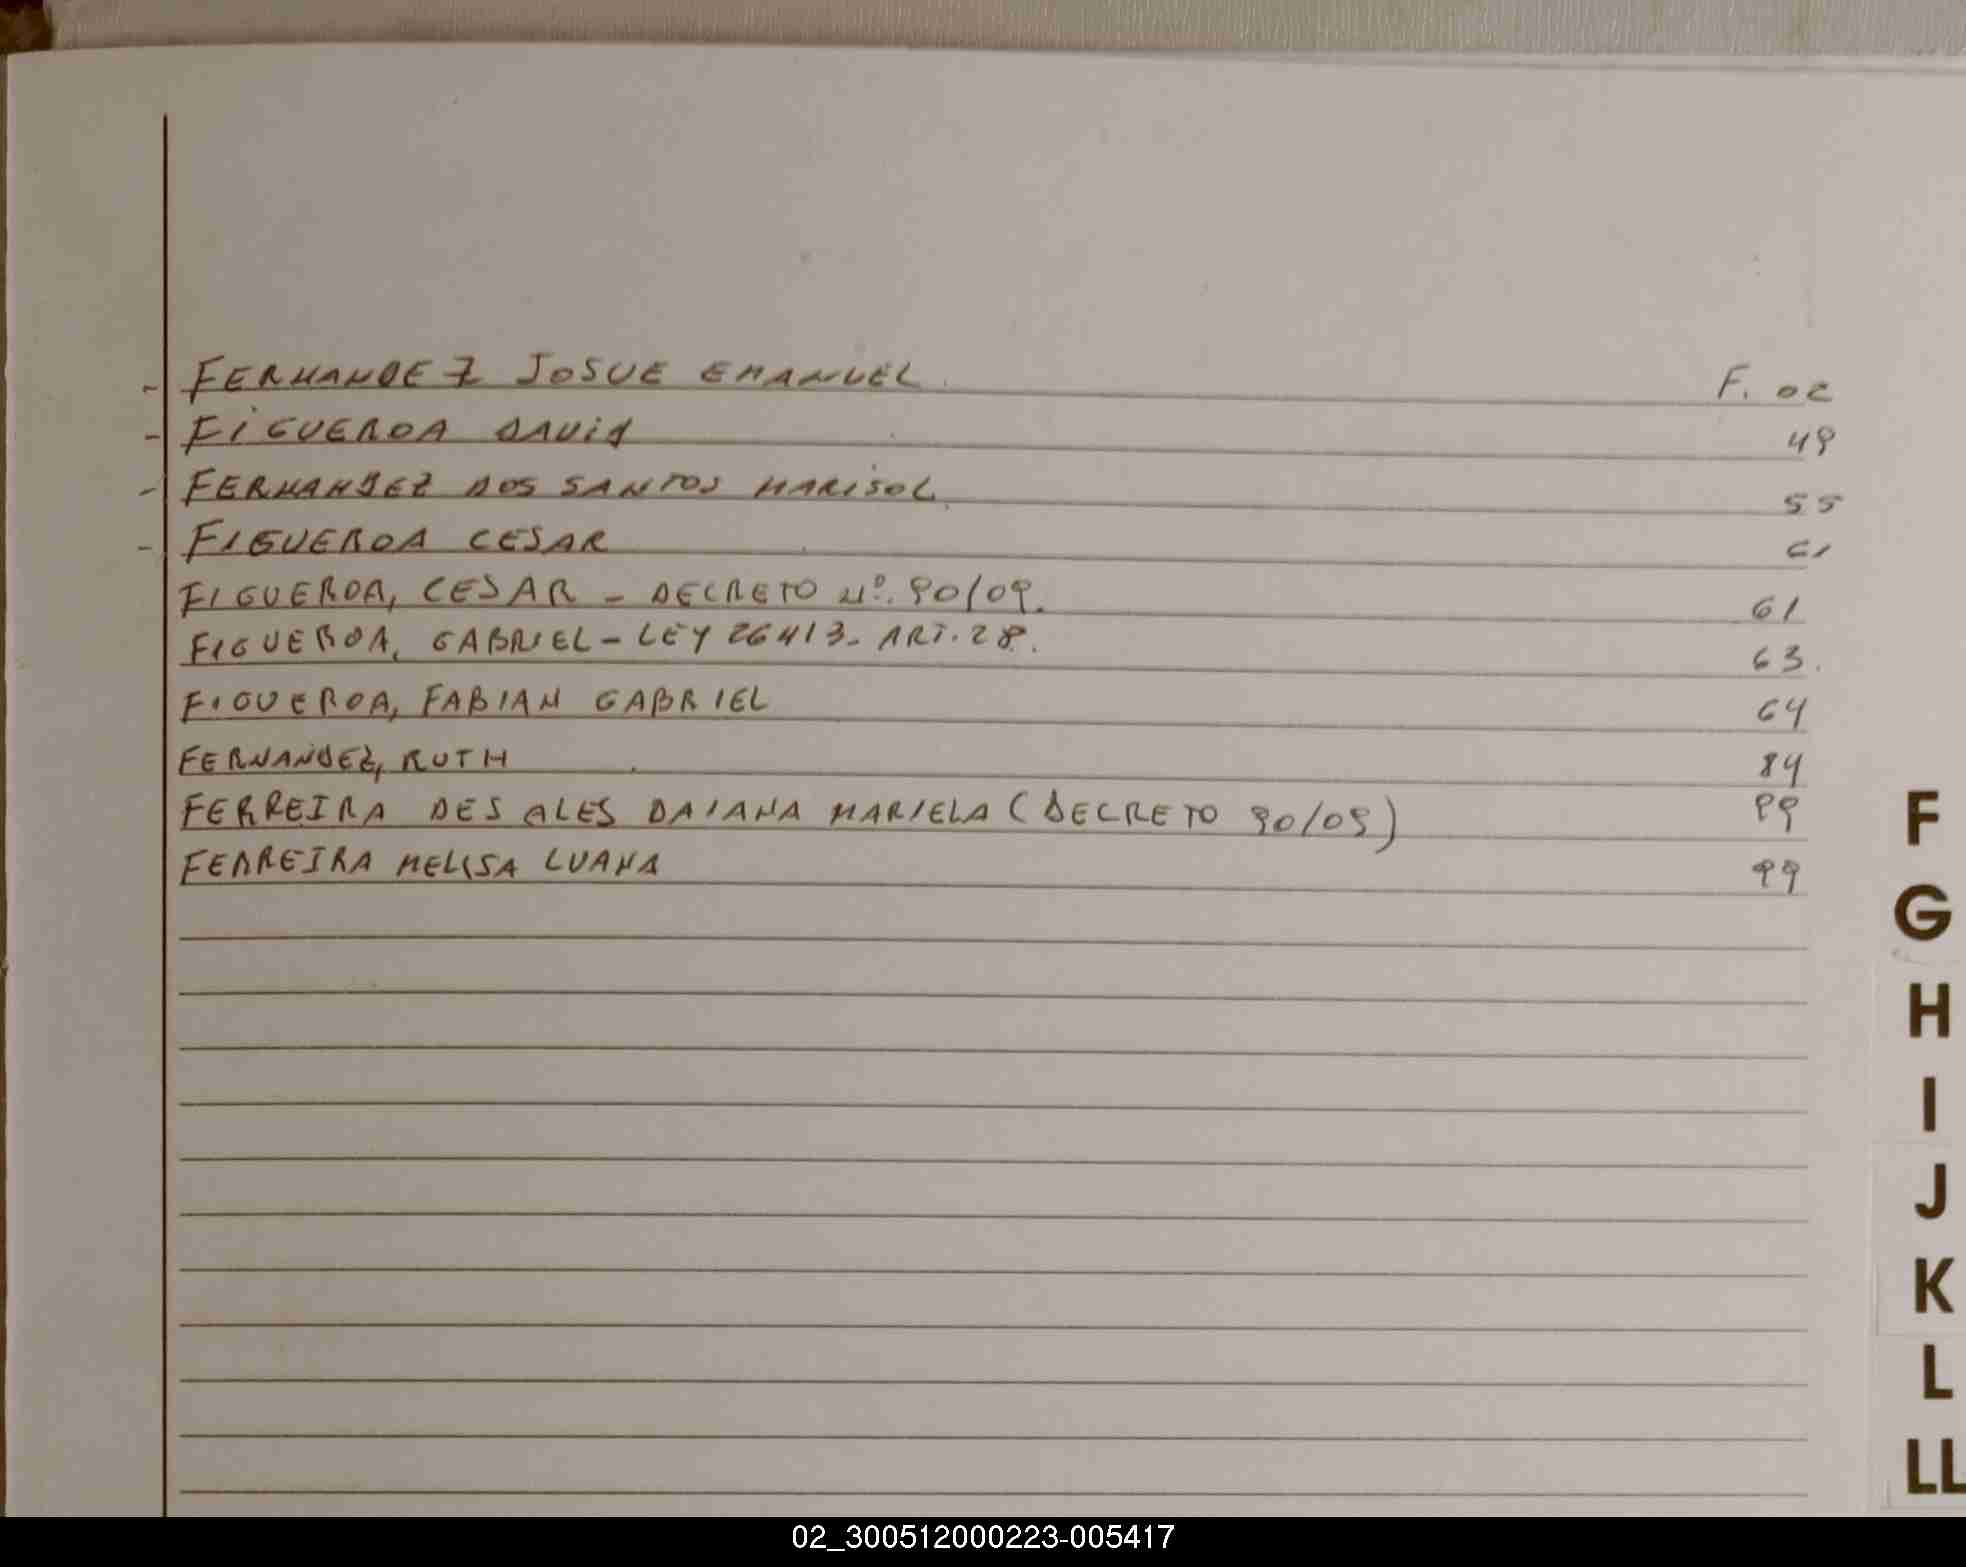 - FERNANDEZ JOSUE EMANUEL F. 02
- FiGUEROA DAViD 49
- FERNANDEZ DOS SANTOS MARiSOL 55
- FIGUEROA CESAR 61
FIGUEROA, CESAR - DECRETO Nº. 90/09. 61
FIGUEROA, GABRIEL - LEY 26413. ART. 28. 63.
FIGUEROA, FABIAN GABRIEL 64
FERNANDEZ, RUTH 84
FERREIRA DESALES DAIANA MARIELA (DECRETO 90/09) 99
FERREIRA MELISA LUANA 99
F
G
H
I
J
K
L
LL
02_300512000223-005417